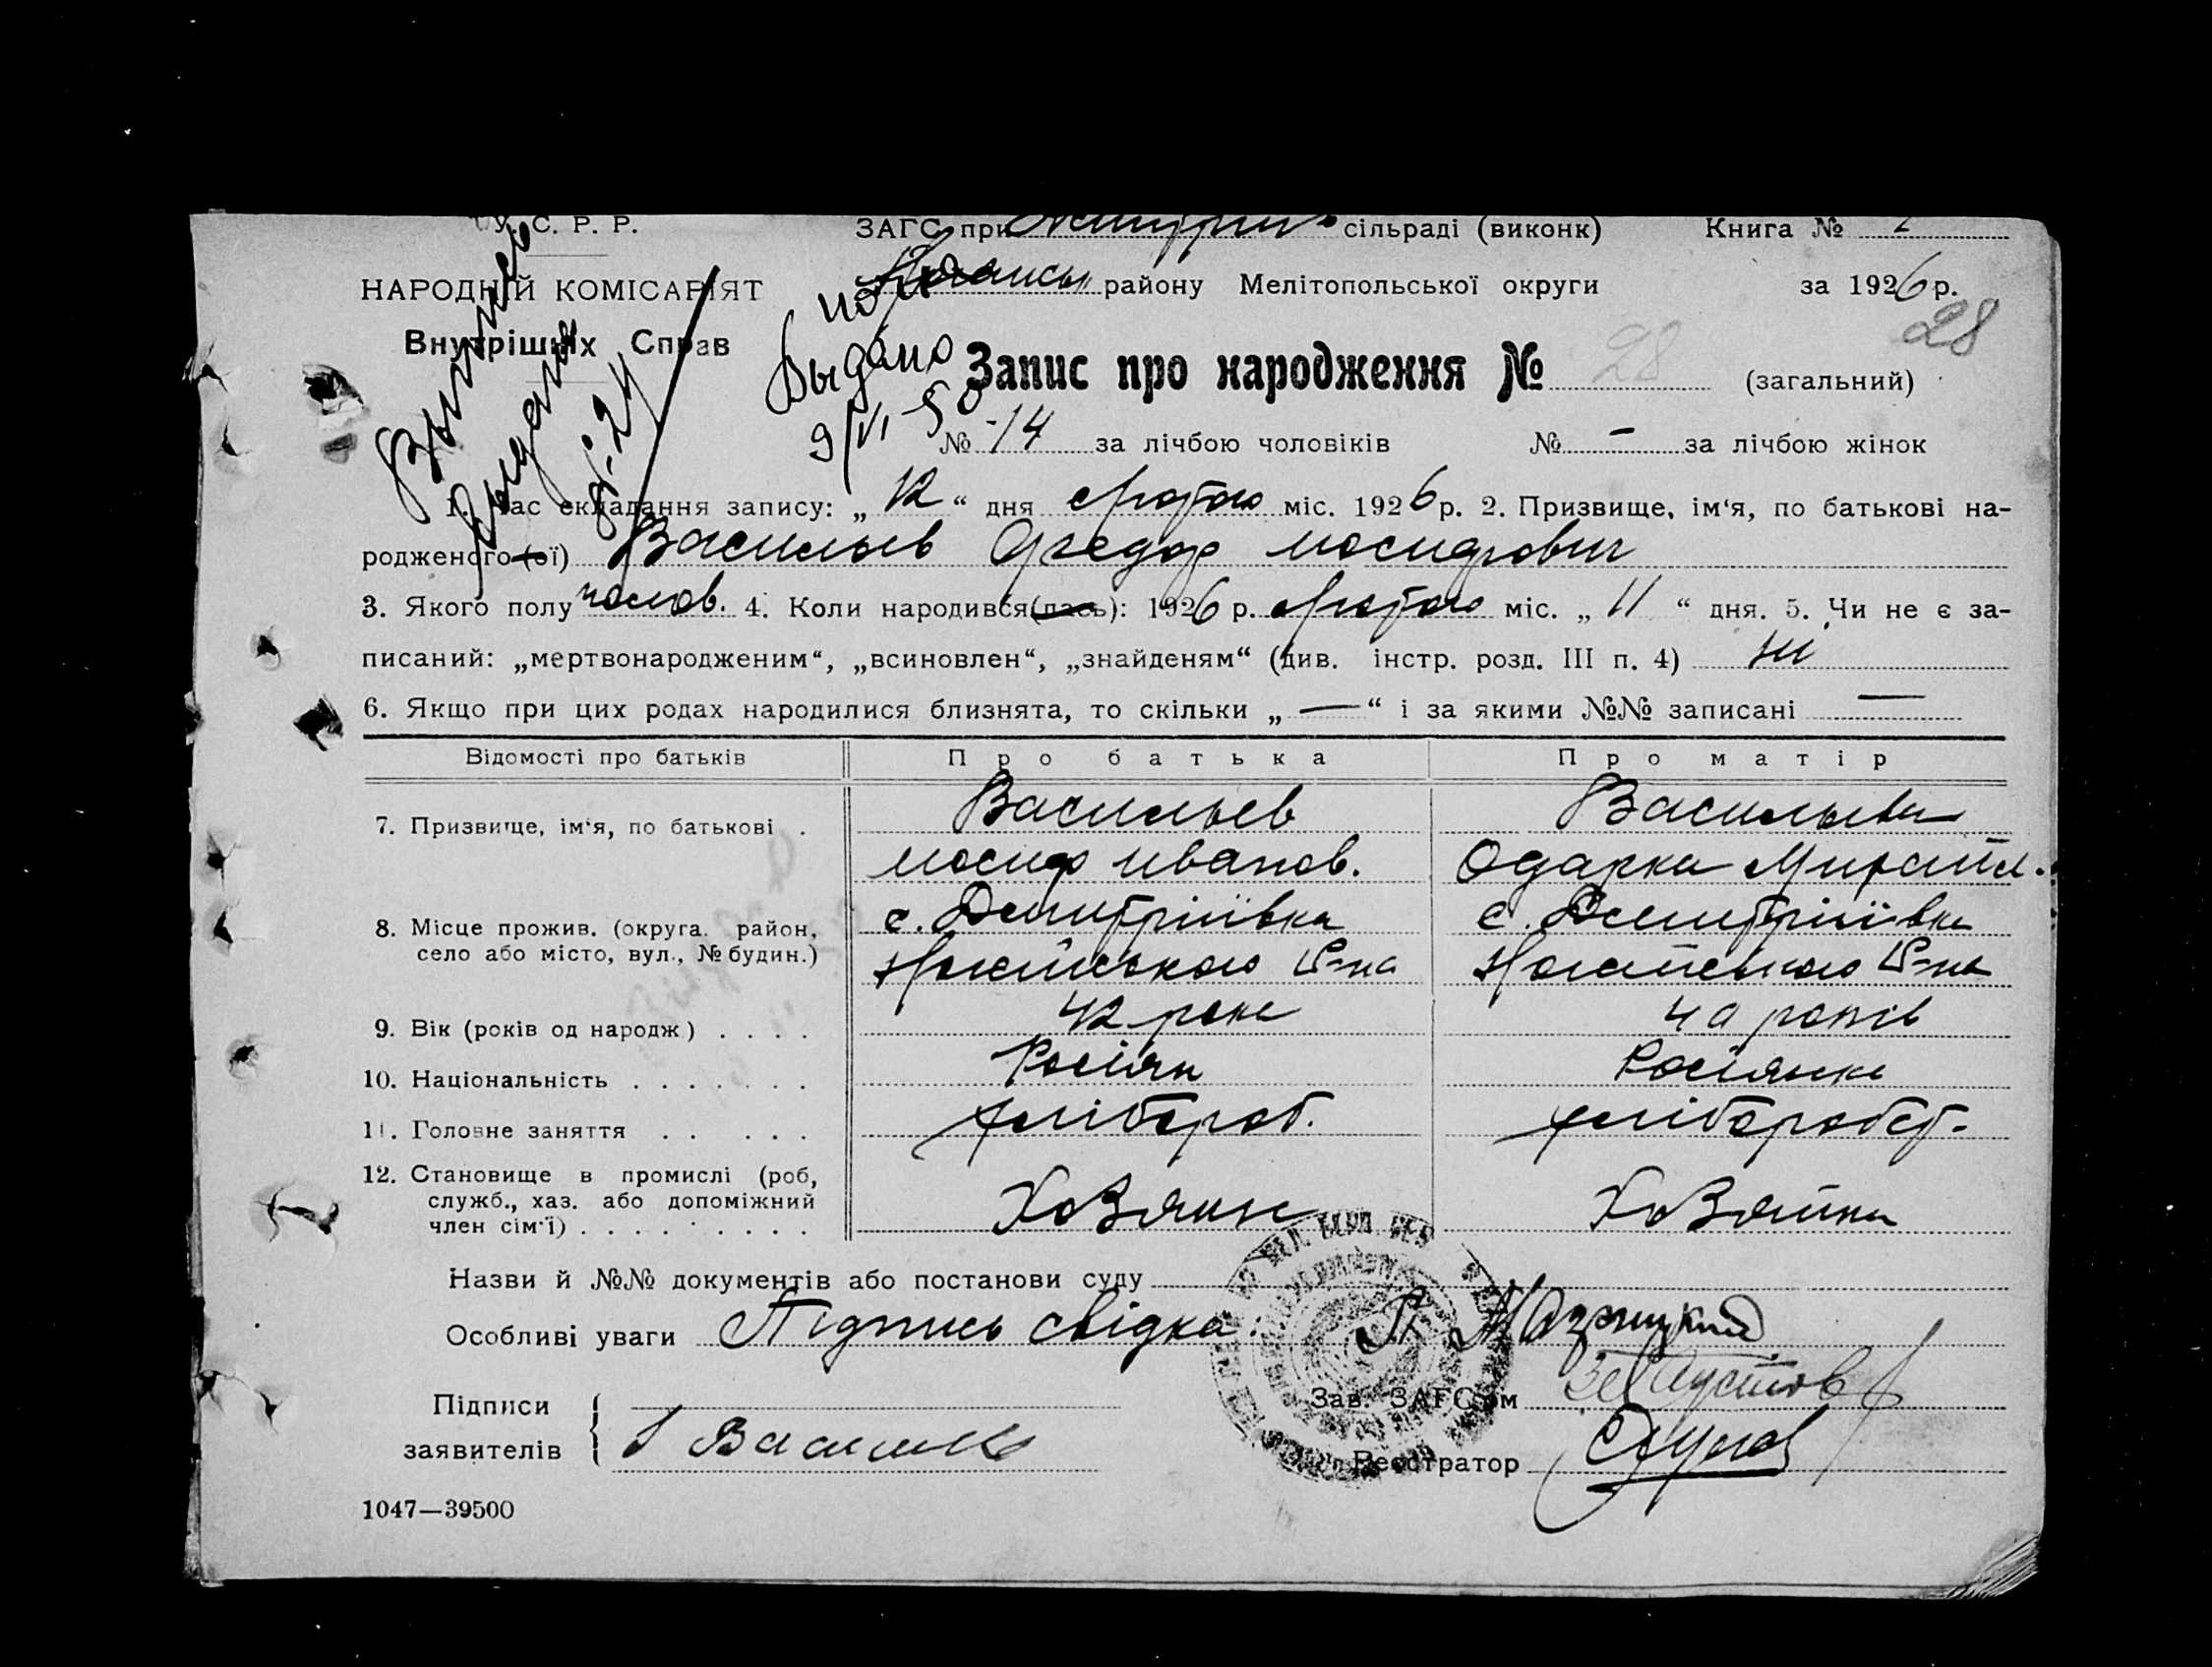 У. С. Р. Р.
ЗАГС при сільраді (виконк)
Книга №
НАРОДНІЙ КОМІСАРІЯТ
району Мелітопольської округи
за 1926 р.
Внутрішніх Справ
28
Выдано
Запис про народження № 28 (загальний)
9/VI-50
№ 14 за лічбою чоловіків № — за лічбою жінок
1. Час складання запису: „ 12 “ дня Лютого міс. 1926 р. 2. Призвище, ім‘я, по батькові на-
родженого (ої) Васильев Федор Иосифович
3. Якого полу чолов. 4. Коли народився(лась): 1926 р. Лютого міс. „ 11 “ дня. 5. Чи не є за-
писаний: „мертвонародженим“, „всиновлен“, „знайденям“ (див. інстр. розд. III п. 4) Ні
6. Якщо при цих родах народилися близнята, то скільки „ — “ і за якими №№ записані —
Відомості про батьків
Про батька
Про матір
7. Призвище, ім‘я, по батькові .
Васильев
Иосиф Иванов.
Васильева
Одарка Михайл.
8. Місце прожив. (округа, район,
село або місто, вул., № будин.)
с. Дмитріївка
Ногайського Р-на
с. Дмитріївка
Ногайського Р-на
9. Вік (років од народж.) . . . .
42 роки
40 років
10. Національність . . . . . . .
Росіян
Росіянка
11. Головне заняття . . . . .
хлібороб.
хліборобст.
12. Становище в промислі (роб,
служб., хаз. або допоміжний
член сім‘ї) . . . . . . . . .
Хозяин
Хозяйка
Назви й №№ документів або постанови суду
Особливі уваги Підпись свідка:
Підписи
заявителів
Васильев
Зав. ЗАГС‘ом
Реєстратор
1047—39500